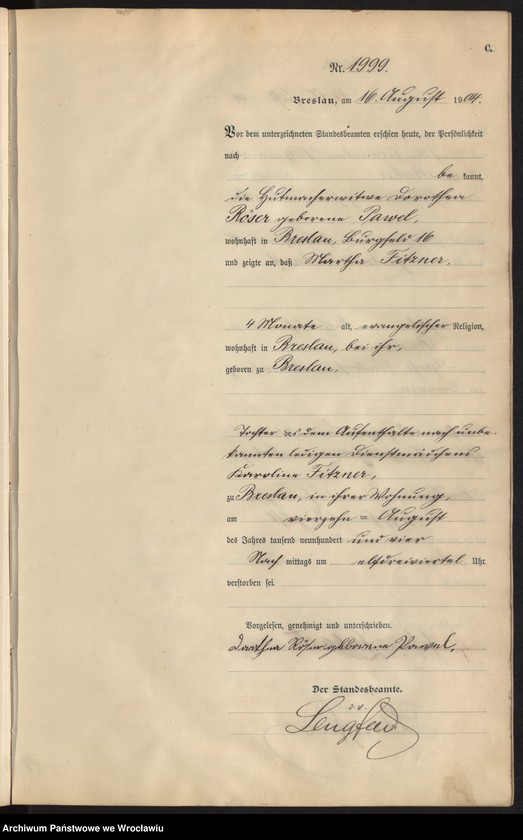 C.
Nr. 1999.
Breslau, am 16. August 1904.
Vor dem unterzeichneten Standesbeamten erschien heute, der Persönlichkeit
nach
be kannt,
die Hutmacherwitwe Dorothea
Röser geborene Pawel,
wohnhaft in Breslau, Burgfeld 16
und zeigte an, daß Martha Fitzner,
4 Monate alt, evangelischer Religion,
wohnhaft in Breslau, bei ihr,
geboren zu Breslau,
Tochter des dem Aufenthalte nach unbe-
kannten ledigen Dienstmädchens
Karoline Fitzner,
zu Breslau, in ihrer Wohnung,
am vierzehn = August
des Jahres tausend neunhundert und vier
Nach mittags um elfdreiviertel Uhr
verstorben sei.
Vorgelesen, genehmigt und unterschrieben.
Röser geborene Pawel,
Der Standesbeamte.
i. V.
Archiwum Państwowe we Wrocławiu